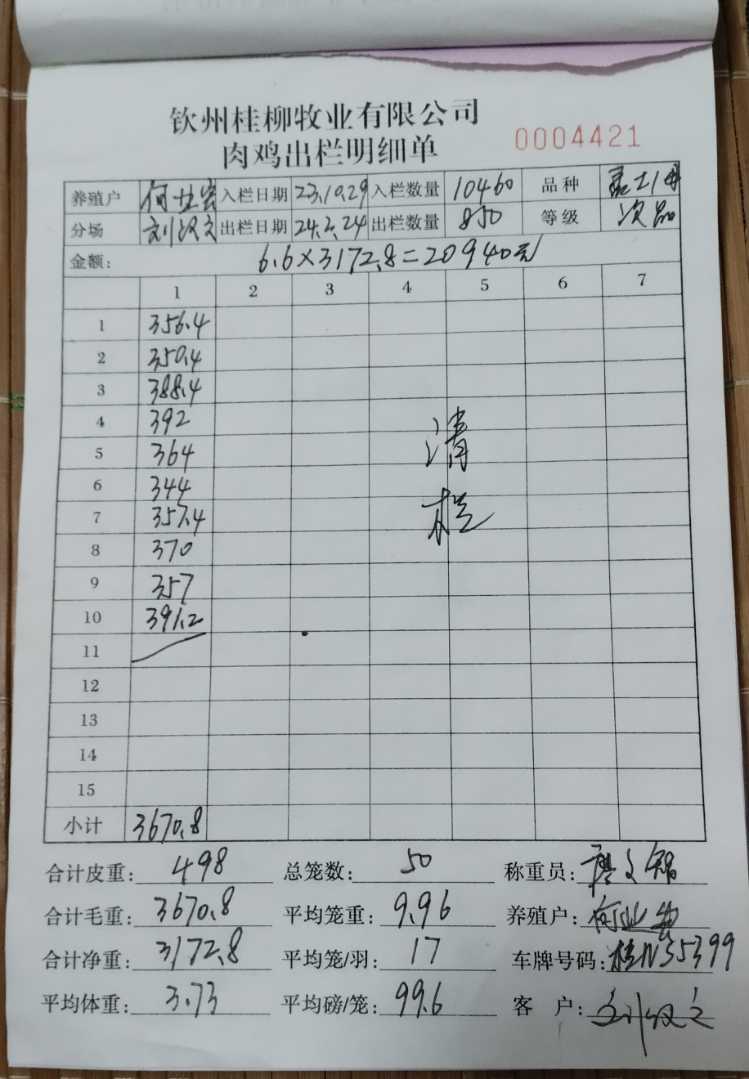 钦州桂柳牧业有限公司
肉鸡出栏明细单 0004421
养殖户 何 入栏日期 23.10.29 入栏数量 10460 品种
分场 刘汉文 出栏日期 24.2.24 出栏数量 850 等级 次品
金额: 6.6×3172.8=20940元
1 2 3 4 5 6 7
1 356.4
2 350.4
3 388.4
4 392
5 364
6 344
7 357.4
8 370
9 357
10 391.2
11
12
13
14
15
清
栏
小计 3670.8
合计皮重: 498 总笼数: 50 称重员:
合计毛重: 3670.8 平均笼重: 9.96 养殖户: 何
合计净重: 3172.8 平均笼/羽: 17 车牌号码: 桂N35399
平均体重: 3.73 平均磅/笼: 99.6 客 户: 刘汉文